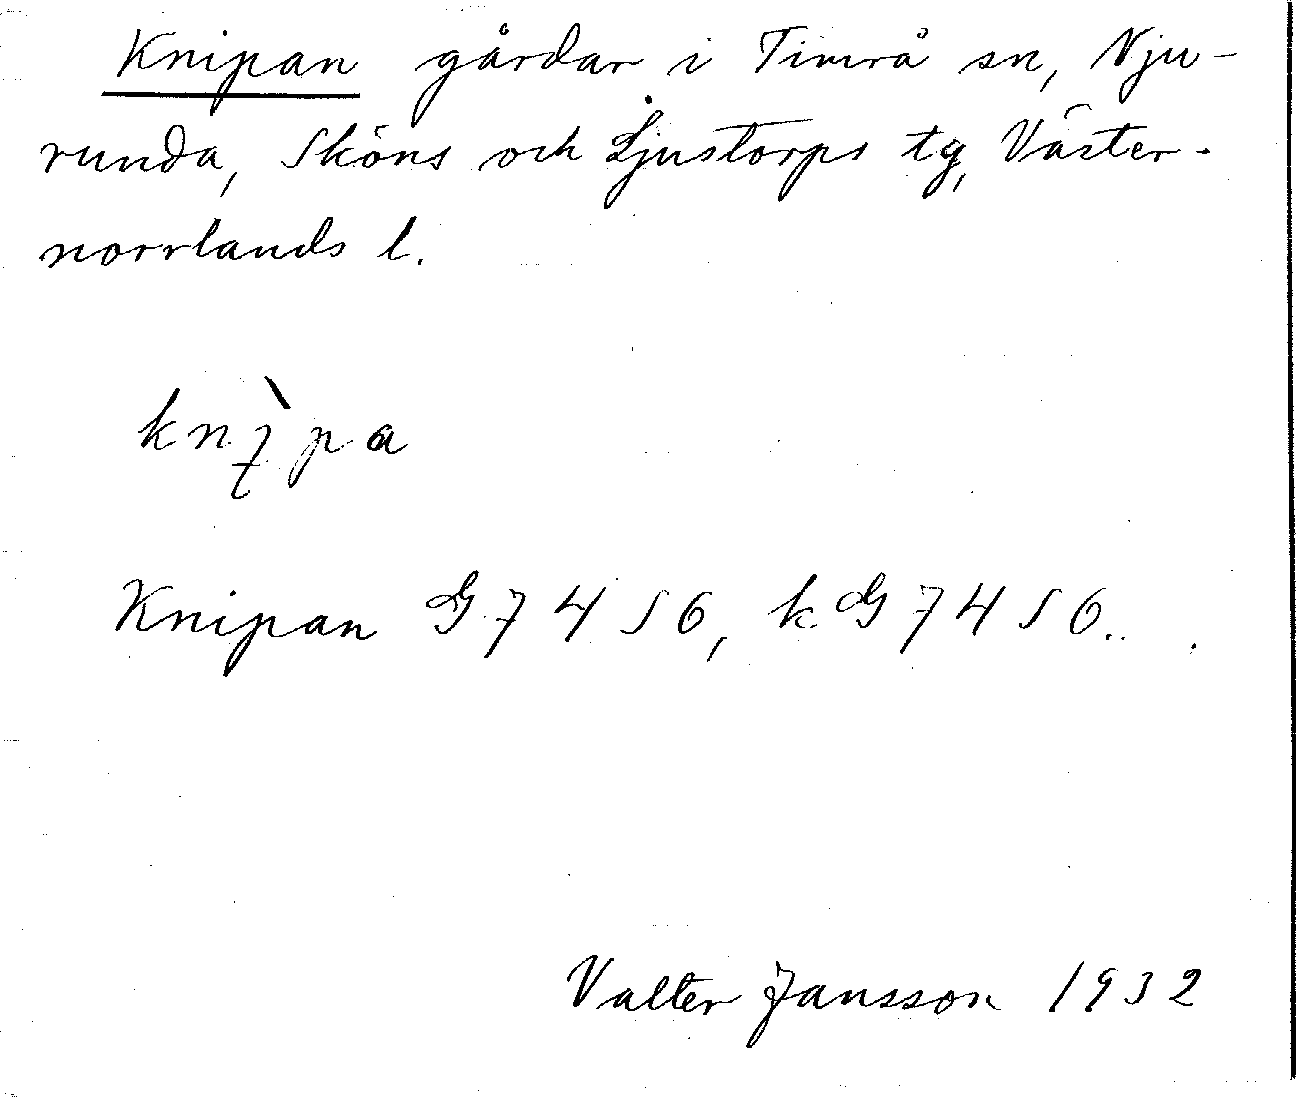 Knipan gårdar i Timrå sn, Nju-
runda, Sköns och Ljustorps tg, Väster-
norrlands l.
knı̀pa
Knipan G 7 4 S 6, kG 7 4 S 6..
Valter Jansson 1932